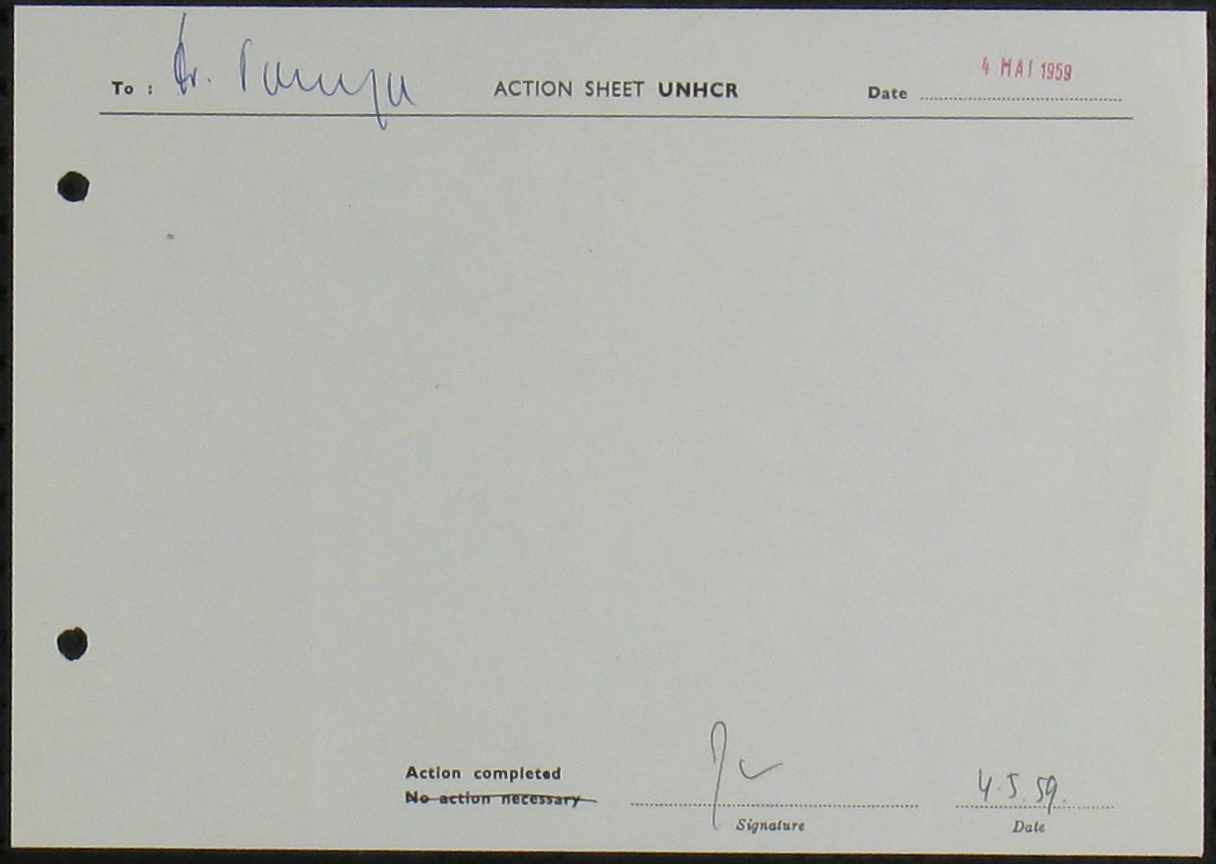 To : Dr.
ACTION SHEET UNHCR
Date 4 MAI 1959
Action completed
No action necessary
4.5.59.
Signature
Date